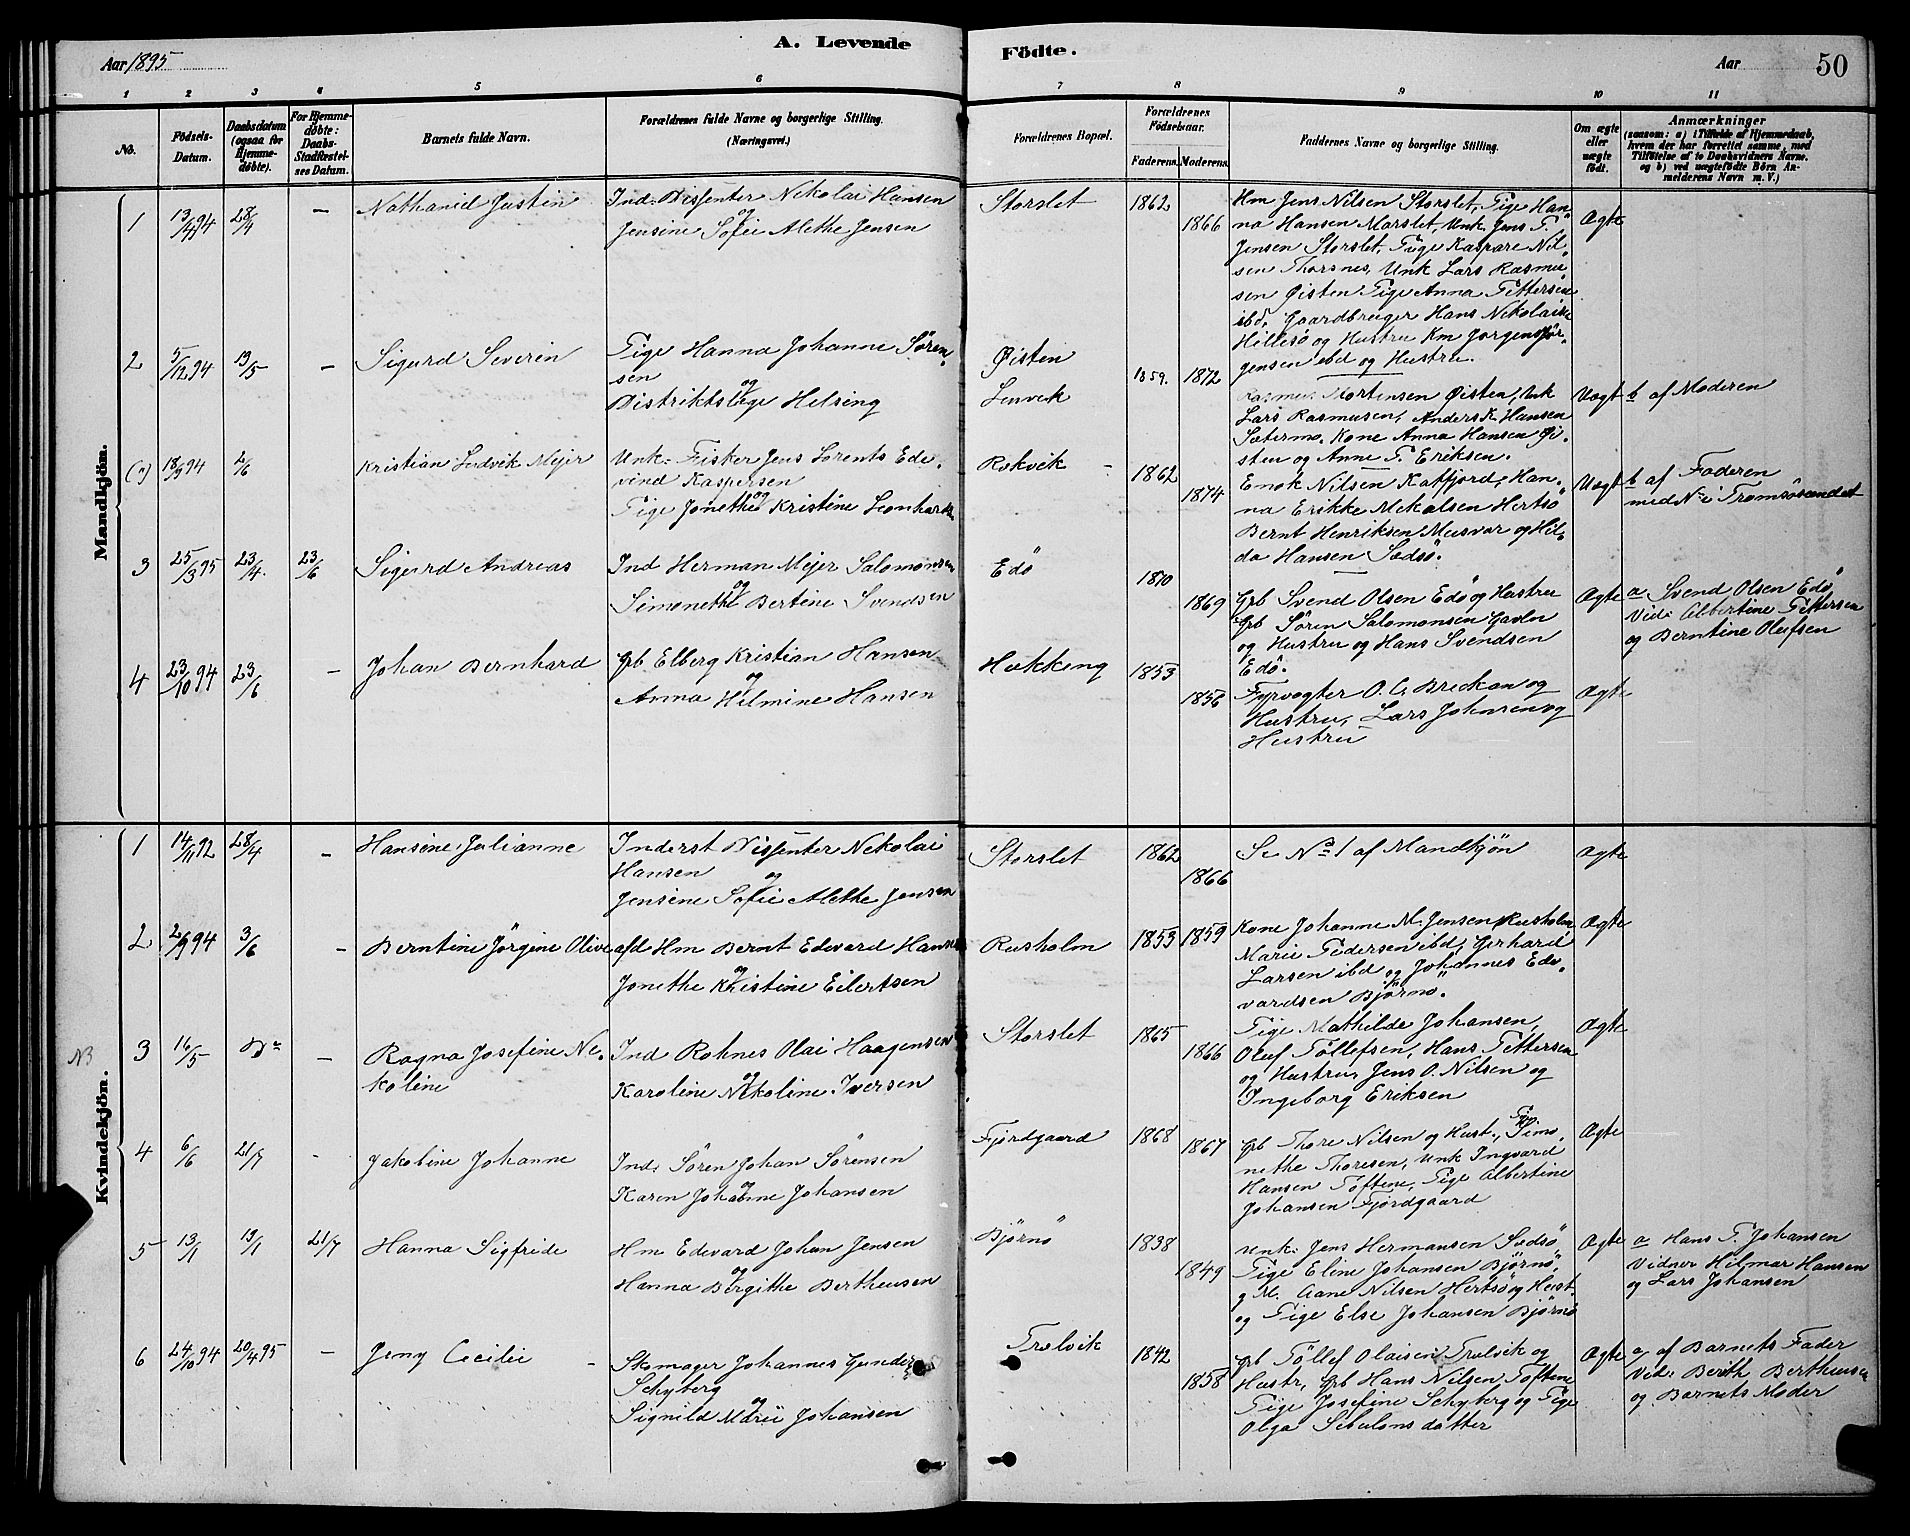 A. Levende
Födte.
Aar 1895
Aar
50
1 2 3 4 5 6 7 8 9 10 11
No.
Födsels-Datum.
Daabsdatum (ogsaa for Hjemmedøbte).
For Hjemmedøbte: Daabs-Stadfæstelses Datum.
Barnets fulde Navn.
Forældrenes fulde Navne og borgerlige Stilling.
(Næringsvei.)
Forældrenes Bopæl.
Forældrenes Födselsaar.
Faderens. Moderens.
Faddernes Navne og borgerlige Stilling.
Om ægte eller uægte født.
Anmærkninger
(saasom: a) i Tilfælde af Hjemmedaab,
hvem der har forrettet samme, med
Tilføielse af to Daabsvidners Navne.
og b) ved uægtefødte Börn An-
melderens Navn m. V.)
Mandkjön.
1 13/4 94 28/4 – Nathanid Justin
Ind. Dissenter Nikolai Hansen
og
Jensine Sofie Alethe Jensen
Storslet 1862 1866
Hm Jens Nilsen Storslet, Pige Han-
na Hansen Marslet, Unk. Jens P.
Jensen Storslet, Pige Kaspare Nil-
sen Thorsnes, Unk Lars Rasmu-
sen Øisten Pige Anna Pettersen
ibd, Gaardbruger Hans Nikolaisen
Hillesø og Hustru Km Jørgen Jør-
gensen ibd og Hustru.
Ægte
2 5/12 94 13/5 – Sigurd Severin
Pige Hanna Johanne Sören-
sen
og
Distriktslæge Helsing
Øisten
Lenvik
1859. 1872
Rasmus Mortensen Øisten, Unk
Lars Rasmusen, Anders K. Hansen
Sætermo, Kone Anna Hansen Øi-
sten og Anne P. Eriksen.
Uægt b af Moderen
(2) 18/9 94 2/6 Kristian Ludvik Mejer
Unk. Fisker Jens Lorents Ede-
vind Kaspersen
og
Pige Jonethe Kristine Leonhards
Rekvik – 1862 1874
Enok Nilsen Katfjord, Han-
na Erikke Mekalsen Hertsö
Bernt Henriksen Musvær og Hil-
da Hansen Sedsö.
Uægt b af Faderen
med No i Tromsösundet
3 25/3 95 23/4. 23/6 Sigurd Andreas
Ind Herman Mejer Salomonsen
og
Simonethe Bertine Svendsen
Edö 1870 1869
Grb Svend Olsen Edö og Hustru
Grb Sören Salomonsen Havln
og Hustru og Hans Svendsen
Edö.
Ægte
a Svend Olsen Edö
Vid: Albertine Pettersen
og Berntine Olufsen
4 23/10 94 23/6 – Johan Bernhard
Grb Elberg Kristian Hansen
og
Anna Hilmine Hansen
Hekkeng 1853 1856
Fyrvogter O. C. Breckan og
Hustru, Lars Johnsen og
Hustru
Ægte
Kvindekjön.
1 14/11 92 28/4 – Hansine Julianne
Inderst Dissenter Nekolai
Hansen
og
Jensine Sofie Alethe Jensen
Storslet 1862 1866
Se No 1 af Mandkjön
Ægte
2 2/9 94 3/6 – Berntine Jörgine Olive
afd Hm Bernt Edevard Hans
og
Jonethe Kristine Eilertsen
Rusholm 1853 1859
Kone Johanne M. Jensen Rusholm
Marie Pedersen ibd, Gerhard
Larsen ibd og Johannes Ede-
vardsen Björnö.
Ægte
NB
3 16/5 Do – Ragna Josefine Ne-
koline
Ind Rohnes Olai Haagensen
og
Karoline Nikoline Iversen
Storslet 1865 1866
Pige Mathilde Johansen,
Oluf Töllefsen, Hans Pettersen
og Hustru, Jens O. Nilsen og
Ingeborg Eriksen
Ægte
4 6/6 21/7 – Jakobine Johanne
Ind. Sören Johan Sörensen
og
Karen Johanne Johansen
Fjordgaard 1868 1867
Grb Thore Nilsen og Hust., Pige Simo-
nethe Thoresen, Unk Ingvard
Hansen Töftene, Pige Albertine
Johansen Fjordgaard
Ægte
5 13/1 13/1 21/7 Hanna Sigfride
Hm Edevard Johan Jensen
og
Hanna Bergithe Bertheusen
Björnö 1838 1849
Unk. Jens Hermansen Sedsö
Pige Eline Johansen Björnö,
g M. Aane Nilsen Hertsö og Hust.
og Pige Else Johansen Björnö
Ægte
a Hans P. Johansen
Vidner Hilmar Hansen
og Lars Johansen
6 24/10 94 20/4 95 – Jeny Cecilie –
Skomager Johannes Gunder
Schyberg
og
Signild Marie Johansen
Trelvik 1842 1858
Grb Töllef Olaisen Trelvik og
Hustr, Grb Hans Nilsen Töftene
Pige Josefine Schyberg og Pige
Olga Sebulonsdatter
Ægte
a, af Barnets Fader
Vid: Berith Bertheusen
og Barnets Moder